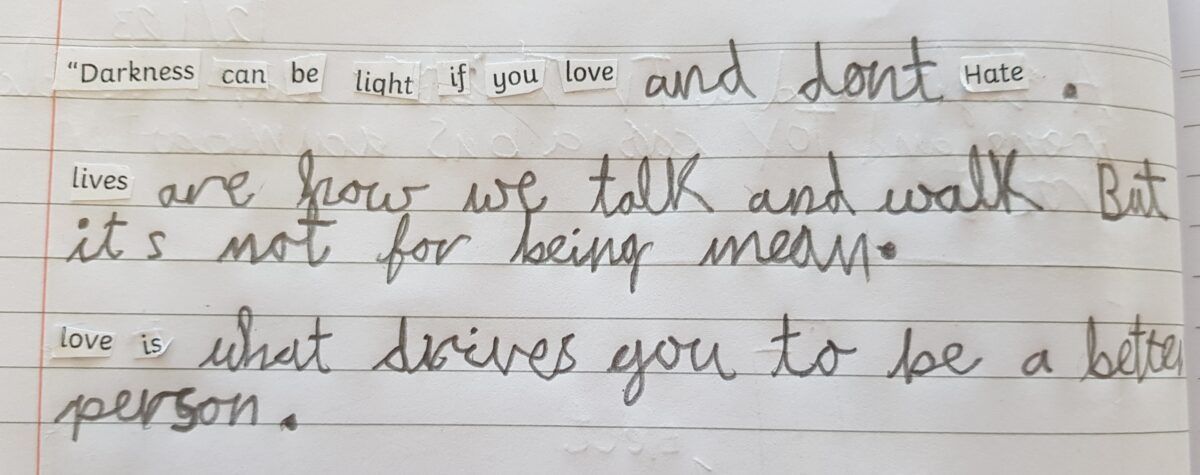 “Darkness can be light if you love and dont Hate .
lives are how we talk and walk But
it's not for being mean.
love is what drives you to be a better
person.